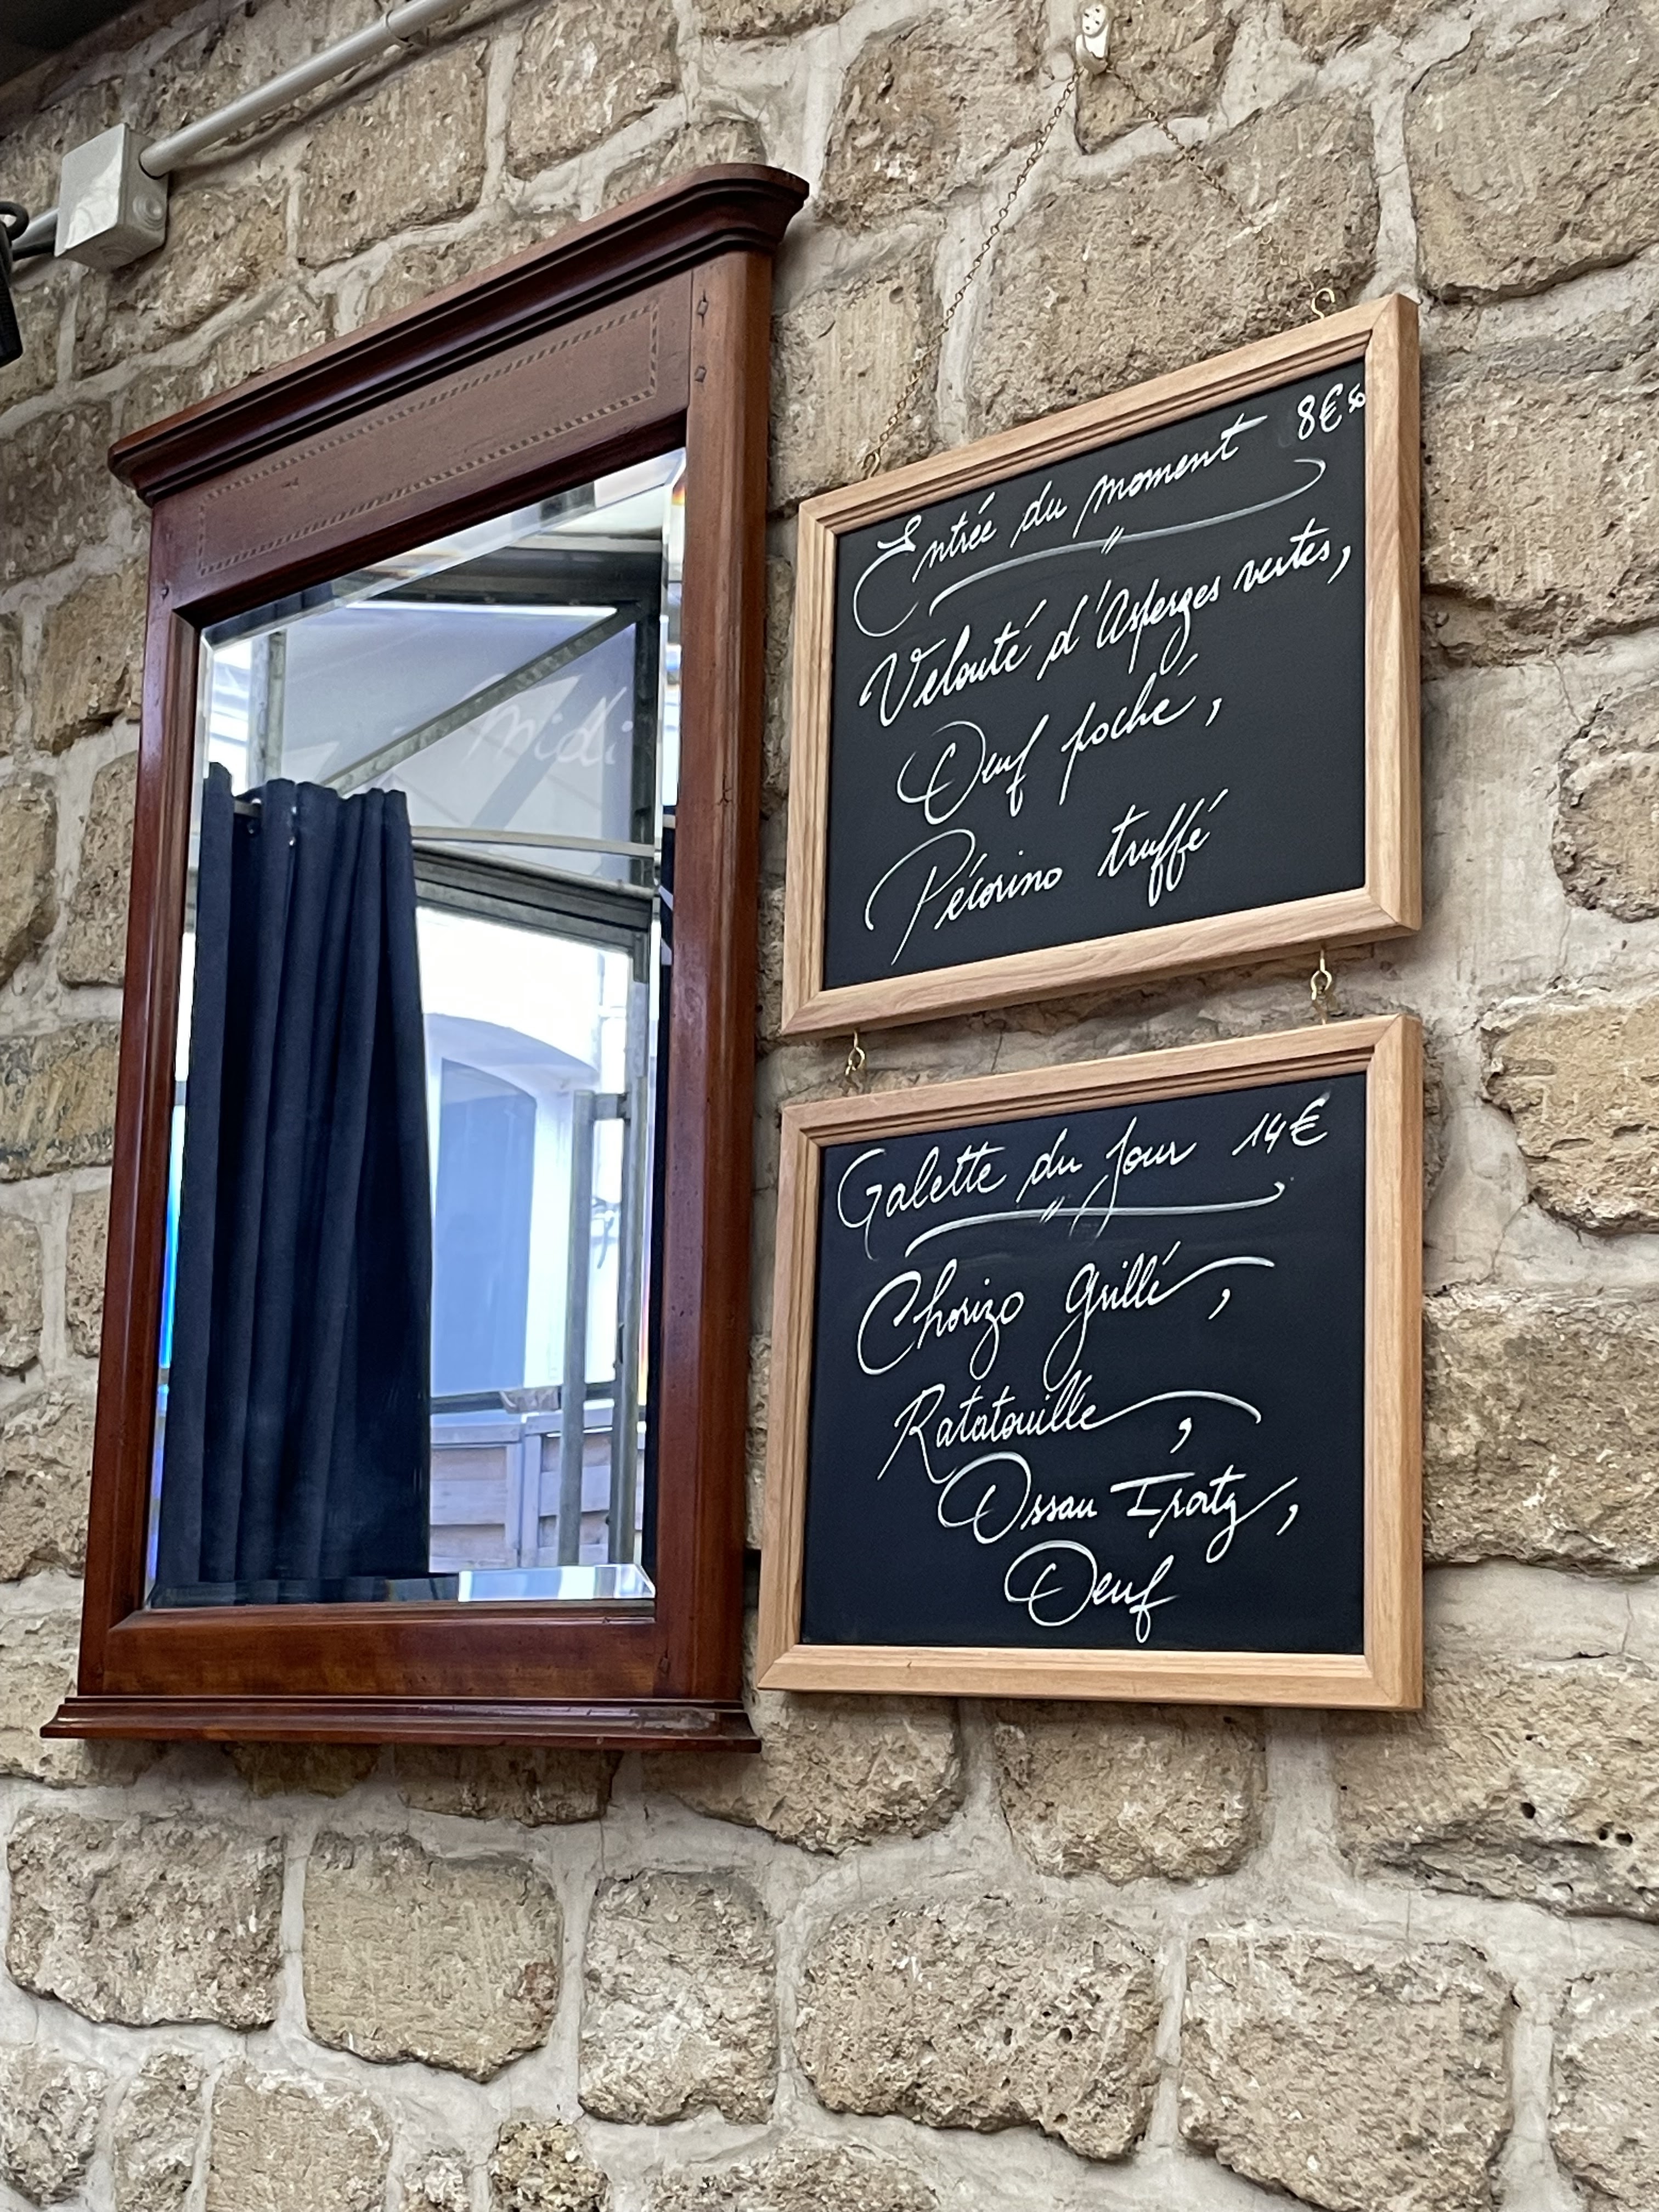 midi
Entrée du moment 8€50
Velouté d'Asperges vertes,
Oeuf poché,
Pécorino truffé
Galette du jour 14€
Chorizo Grillé,
Ratatouille,
Ossau Iraty,
Oeuf